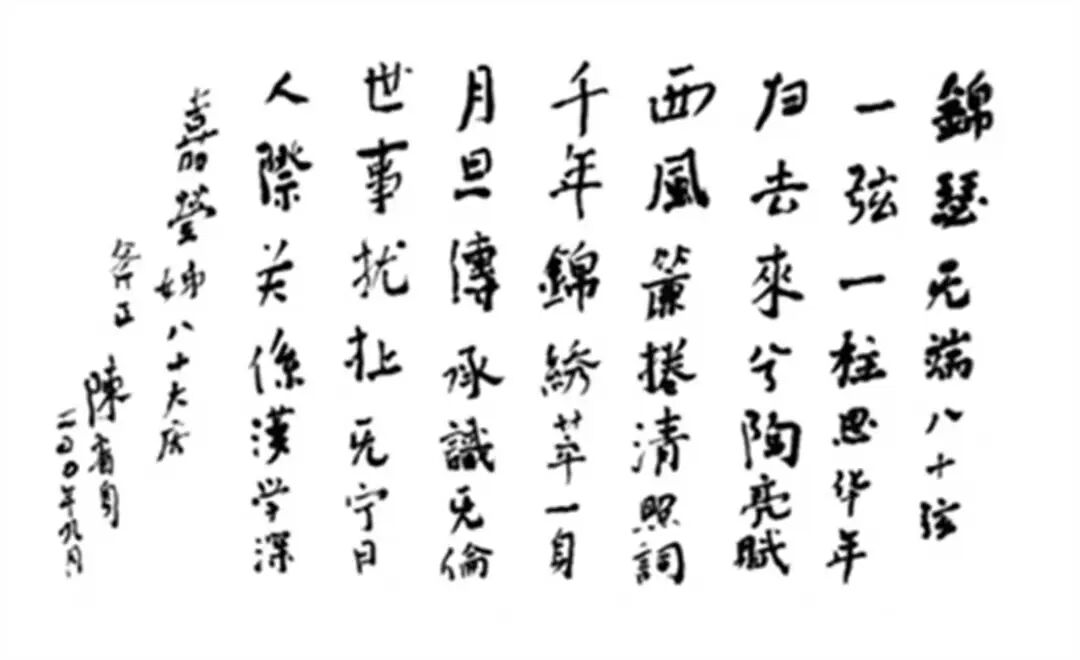 錦瑟无端八十弦
一弦一柱思华年
归去來兮陶亮賦
西風簾捲清照詞
千年錦綉萃一身
月旦傳承識无倫
世事扰扯无宁日
人際关係漢学深
嘉瑩姊八十大庆
斧正
陳省身
二〇〇年九月